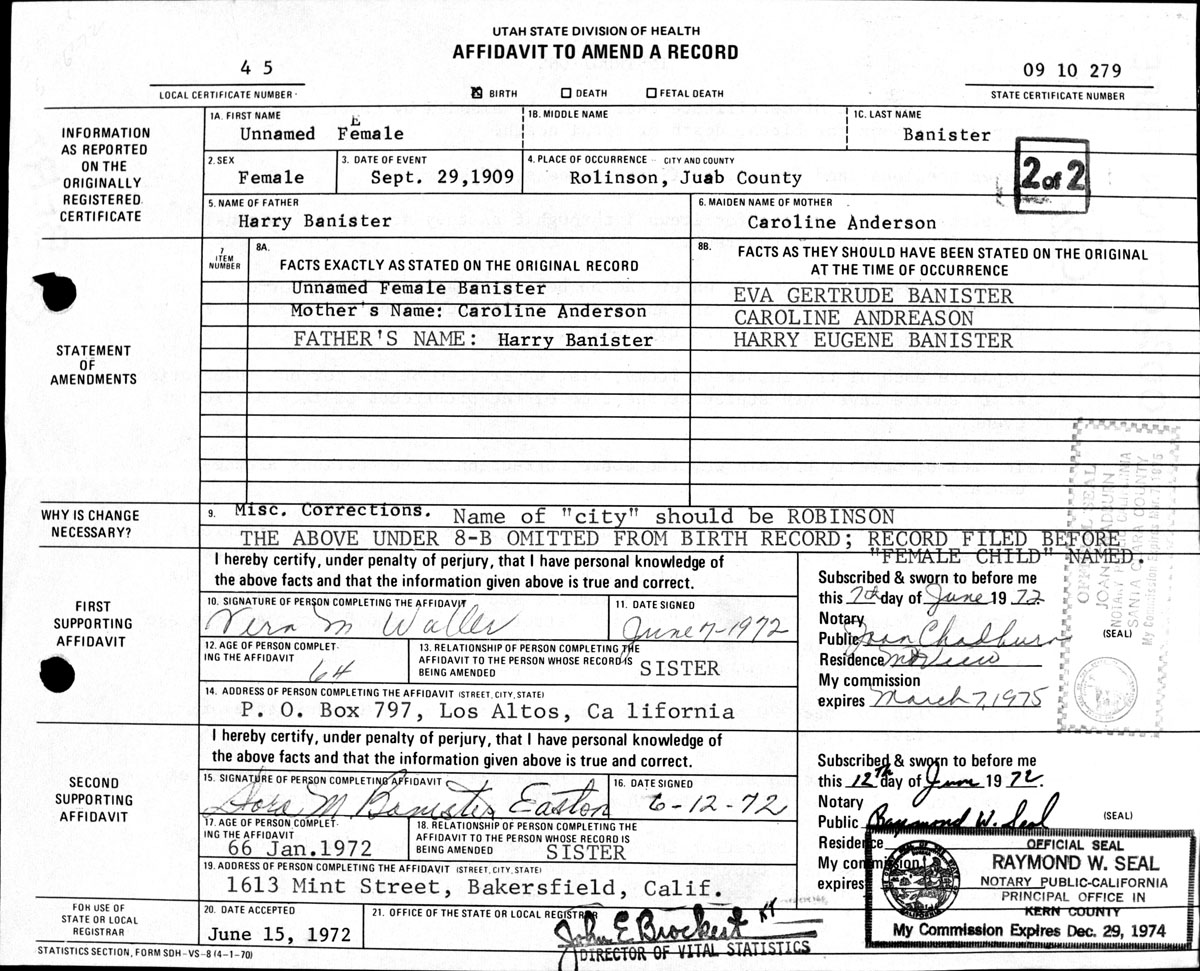 UTAH STATE DIVISION OF HEALTH
AFFIDAVIT TO AMEND A RECORD
4 5
LOCAL CERTIFICATE NUMBER
☒ BIRTH ☐ DEATH ☐ FETAL DEATH
09 10 279
STATE CERTIFICATE NUMBER
INFORMATION
AS REPORTED
ON THE
ORIGINALLY
REGISTERED
CERTIFICATE
1A. FIRST NAME
E
Unnamed Female
1B. MIDDLE NAME
1C. LAST NAME
Banister
2. SEX
Female
3. DATE OF EVENT
Sept. 29,1909
4. PLACE OF OCCURRENCE - CITY AND COUNTY
Rolinson, Juab County
2 of 2
5. NAME OF FATHER
Harry Banister
6. MAIDEN NAME OF MOTHER
Caroline Anderson
STATEMENT
OF
AMENDMENTS
7
ITEM
NUMBER
8A.
FACTS EXACTLY AS STATED ON THE ORIGINAL RECORD
8B.
FACTS AS THEY SHOULD HAVE BEEN STATED ON THE ORIGINAL
AT THE TIME OF OCCURRENCE
Unnamed Female Banister
EVA GERTRUDE BANISTER
Mother's Name: Caroline Anderson
CAROLINE ANDREASON
FATHER'S NAME: Harry Banister
HARRY EUGENE BANISTER
WHY IS CHANGE
NECESSARY?
9. Misc. Corrections. Name of "city" should be ROBINSON
THE ABOVE UNDER 8-B OMITTED FROM BIRTH RECORD; RECORD FILED BEFORE
"FEMALE CHILD" NAMED.
FIRST
SUPPORTING
AFFIDAVIT
I hereby certify, under penalty of perjury, that I have personal knowledge of
the above facts and that the information given above is true and correct.
10. SIGNATURE OF PERSON COMPLETING THE AFFIDAVIT
Vera M Waller
11. DATE SIGNED
June 7-1972
12. AGE OF PERSON COMPLET-
ING THE AFFIDAVIT
64
13. RELATIONSHIP OF PERSON COMPLETING THE
AFFIDAVIT TO THE PERSON WHOSE RECORD IS
BEING AMENDED
SISTER
14. ADDRESS OF PERSON COMPLETING THE AFFIDAVIT (STREET, CITY, STATE)
P. O. Box 797, Los Altos, Ca lifornia
Subscribed & sworn to before me
this 7th day of June 19 72
Notary
Public Joan Chadburn (SEAL)
Residence Mt View
My commission
expires March 7, 1975
OFFICIAL SEAL
JOAN CHADBURN
SANTA CLARA COUNTY
My Commission Expires Mar. 7, 1975
SECOND
SUPPORTING
AFFIDAVIT
I hereby certify, under penalty of perjury, that I have personal knowledge of
the above facts and that the information given above is true and correct.
15. SIGNATURE OF PERSON COMPLETING AFFIDAVIT
Dora M Banister Easton
16. DATE SIGNED
6-12-72
17. AGE OF PERSON COMPLET-
ING THE AFFIDAVIT
66 Jan.1972
18. RELATIONSHIP OF PERSON COMPLETING THE
AFFIDAVIT TO THE PERSON WHOSE RECORD IS
BEING AMENDED
SISTER
19. ADDRESS OF PERSON COMPLETING THE AFFIDAVIT (STREET, CITY, STATE)
1613 Mint Street, Bakersfield, Calif.
Subscribed & sworn to before me
this 12th day of June 19 72.
Notary
Public Raymond W. Seal (SEAL)
Residence
My commission
expires
OFFICIAL SEAL
RAYMOND W. SEAL
NOTARY PUBLIC-CALIFORNIA
PRINCIPAL OFFICE IN
KERN COUNTY
My Commission Expires Dec. 29, 1974
FOR USE OF
STATE OR LOCAL
REGISTRAR
20. DATE ACCEPTED
June 15, 1972
21. OFFICE OF THE STATE OR LOCAL REGISTRAR
John E Brockert
DIRECTOR OF VITAL STATISTICS
STATISTICS SECTION, FORM SDH-VS-8 (4-1-70)